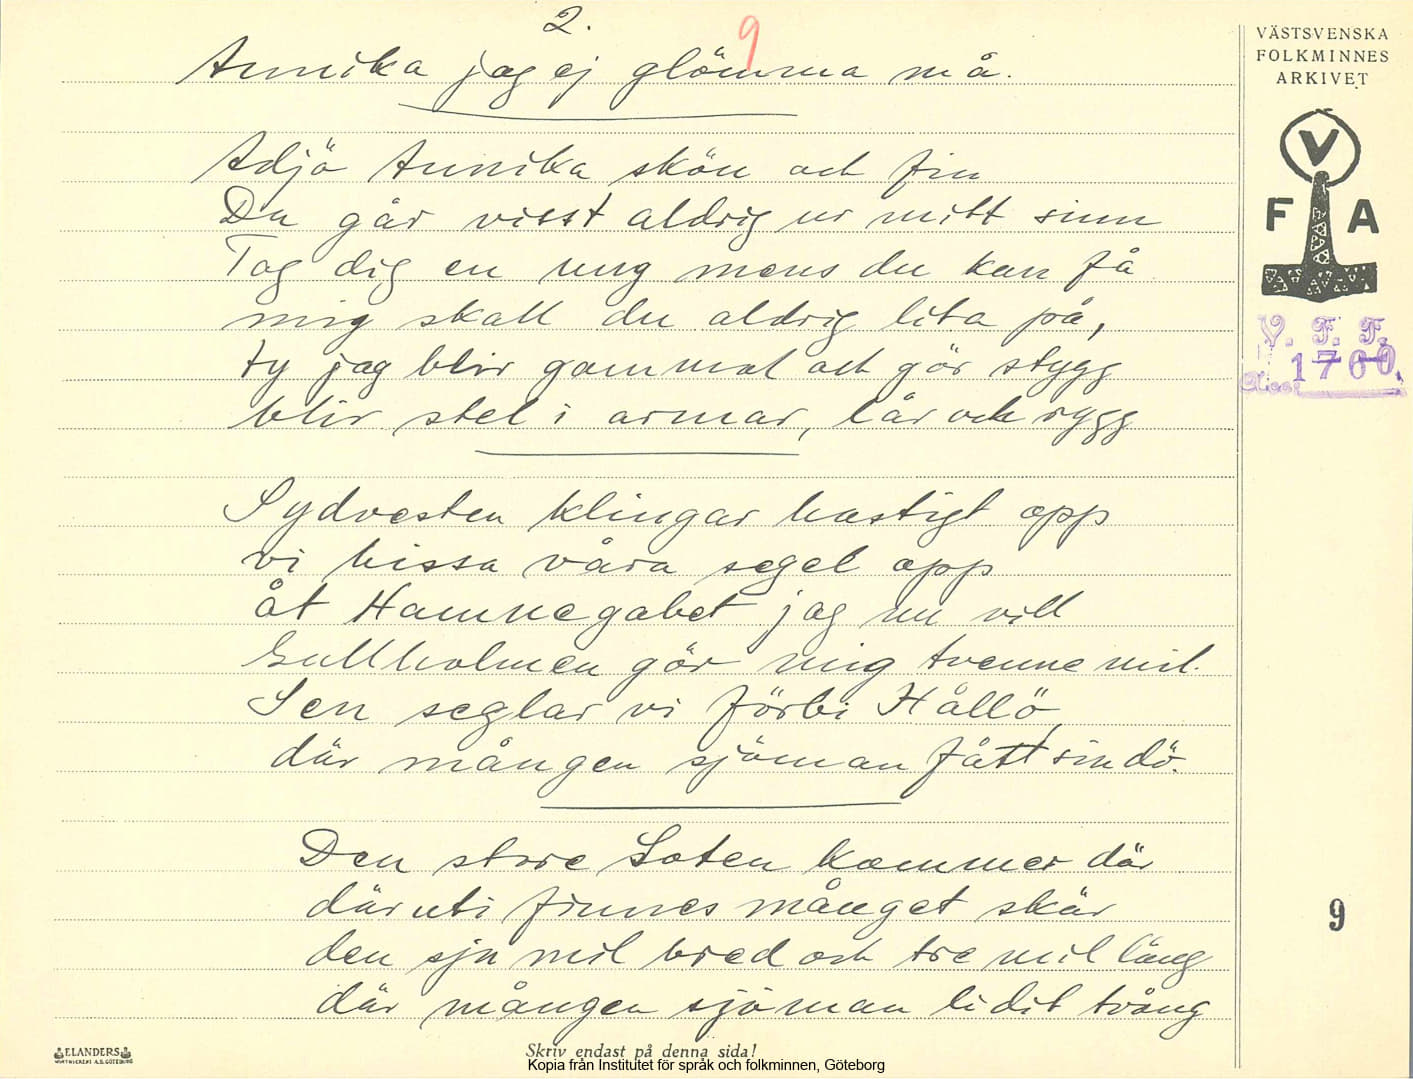 2.
9
Annika jag ej glömma må.
Adjö Annika skön och fin
Du går visst aldrig ur mitt sinn
Tag dig en ung mens du kan få
mig skall du aldrig lita på,
ty jag blir gammal och gör stygg
blir stel i armar, lår och rygg
Sydvesten klingar hastigt opp
vi hissa våra segel opp
åt Hamnegabet jag nu vill
Gullholmen gör mig tvenne mil.
Sen seglar vi förbi Hållö
där mången sjöman fått sin dö.
Den store Soten kommer där
där uti finnes månget skär
den sju mil bred och tre mil lång
där mången sjöman lidit tvång
VÄSTSVENSKA
FOLKMINNES
ARKIVET
V
F A
V. F. F.
1700
9
ELANDERS
Skriv endast på denna sida!
Kopia från Institutet för språk och folkminnen, Göteborg